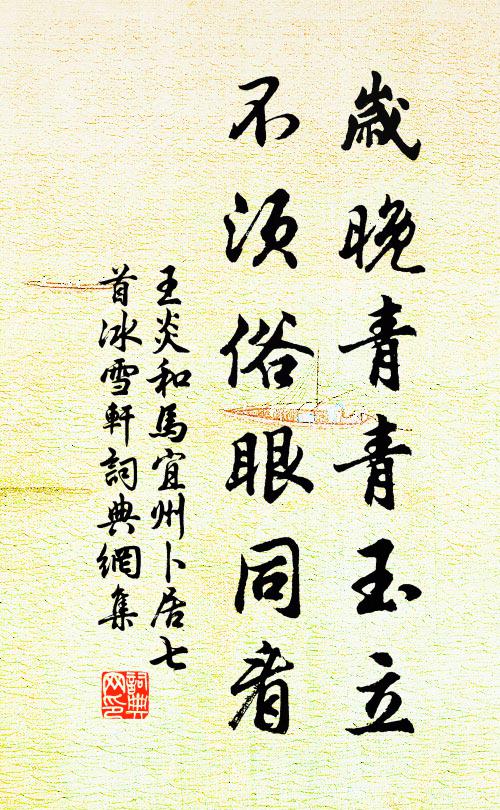 歲晚青青玉立
不須俗眼同看
王炎和馬宜州卜居七
首冰雪軒詞典網集
詞典網印